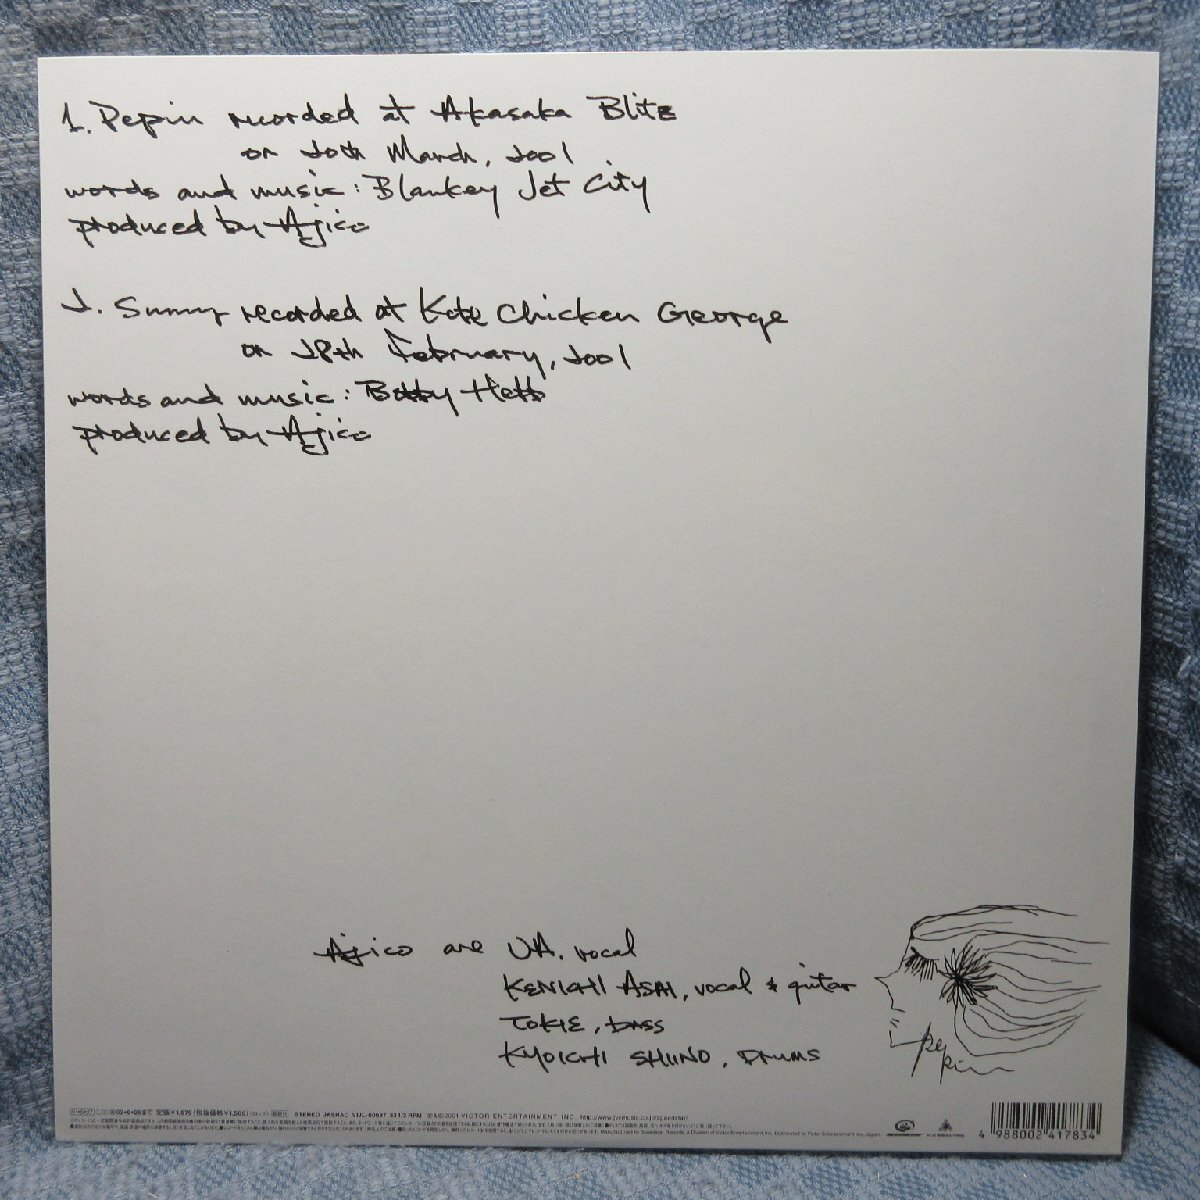 1. Pepin recorded at Akasaka Blitz
on 20th March, 2001
words and music: Blankey Jet City
produced by Ajico
2. Sunny recorded at Kobe Chicken George
on 28th February, 2001
words and music: Bobby Hebb
produced by Ajico
Ajico are UA, vocal
KENICHI ASAI, vocal & guitar
TOKIE, bass
KYOICHI SHIINO, Drums
pepin
STEREO JASRAC 33 1/3 RPM ℗&© 2001 VICTOR ENTERTAINMENT, INC.
4 988002 417834